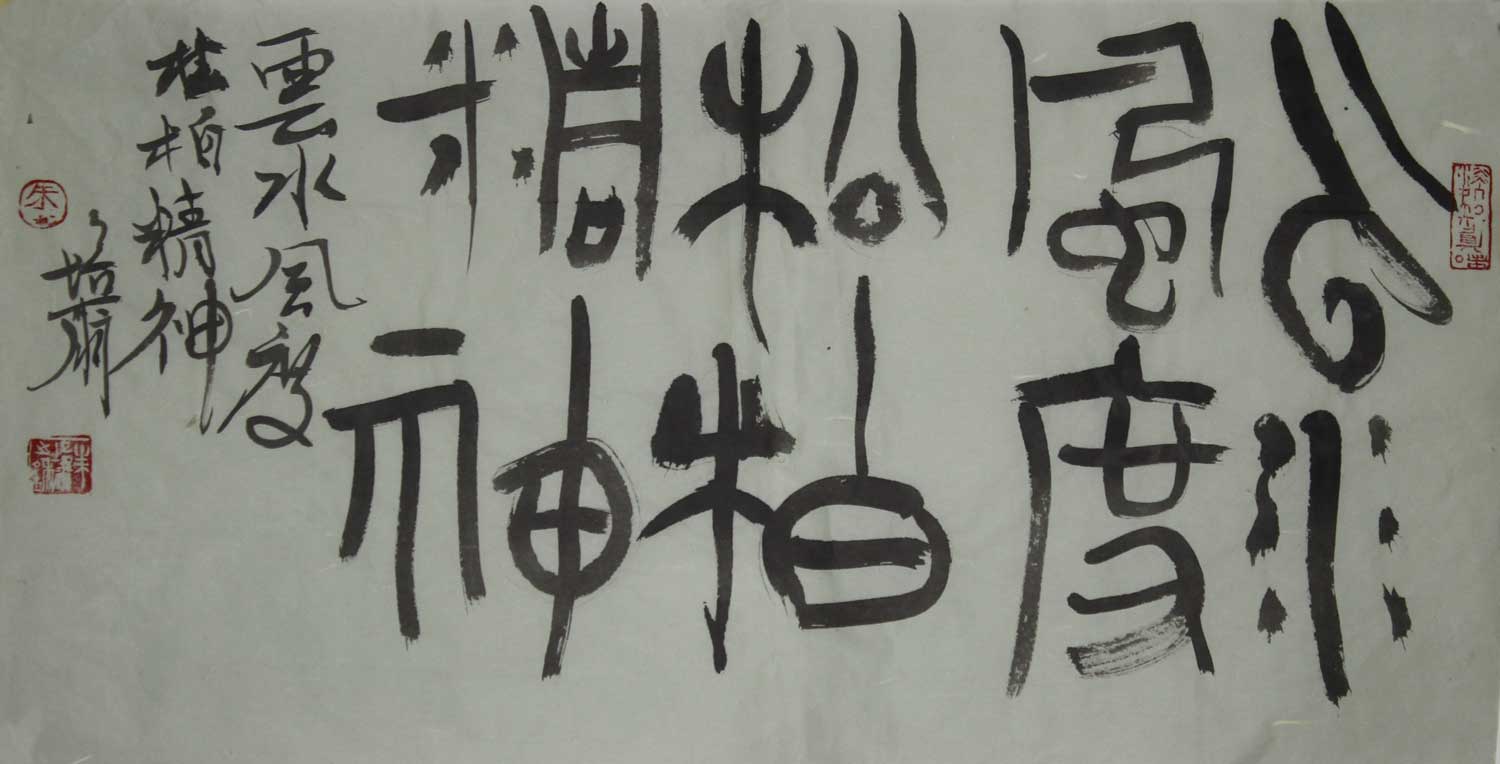 云水
風度
松柏
精神
雲水风度
松柏精神